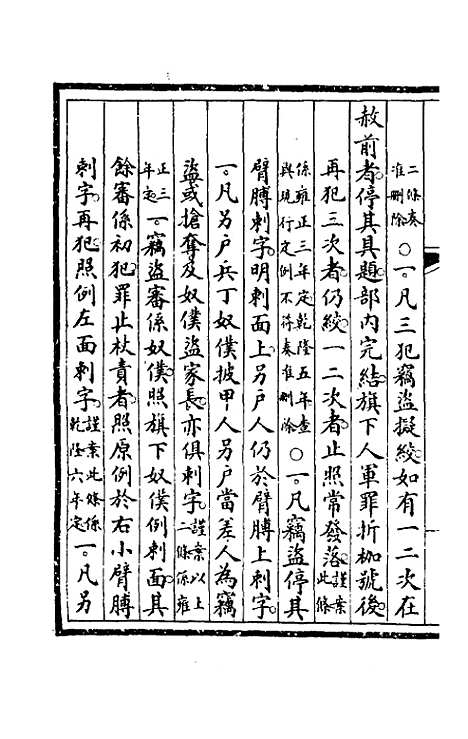 二條奏准刪除〇一凡三犯竊盜擬絞如有一二次在
赦前者停其具題部内完結旗下人軍罪折枷號後
再犯三次者仍絞一二次者止照常發落謹案此條
係雍正三年定乾隆五年查與現行定例不符奏准刪除〇一凡竊盜停其
臂膊刺字明刺面上另户人仍於臂膊上刺字
一凡另户兵丁奴僕披甲人另户當差人為竊
盜或搶奪及奴僕盜家長亦俱刺字謹案以上二條係雍
正三年定一竊盜審係奴僕照旗下奴僕例刺面其
餘審係初犯罪止杖責者照原例於右小臂膊
刺字再犯照例左面刺字謹案此條係乾隆六年定一凡另